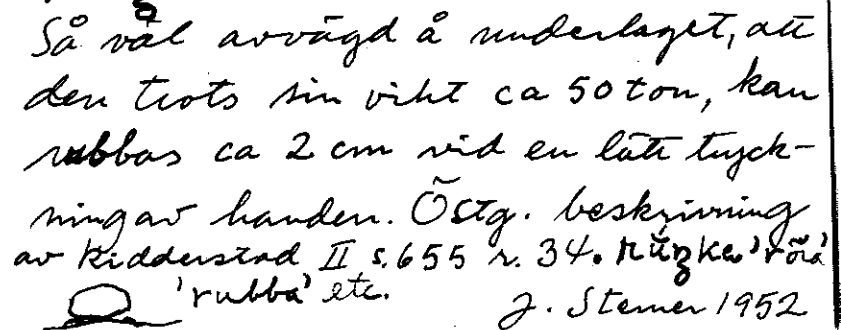 Så väl avvägd å underlaget, att
den trots sin vikt ca 50 ton, kan
rubbas ca 2 cm vid en lätt tryck-
ning av handen. Östg. beskrivning
av Ridderstad II s. 655 r. 34. 'röra'
'rubba' etc. J. Sterner 1952